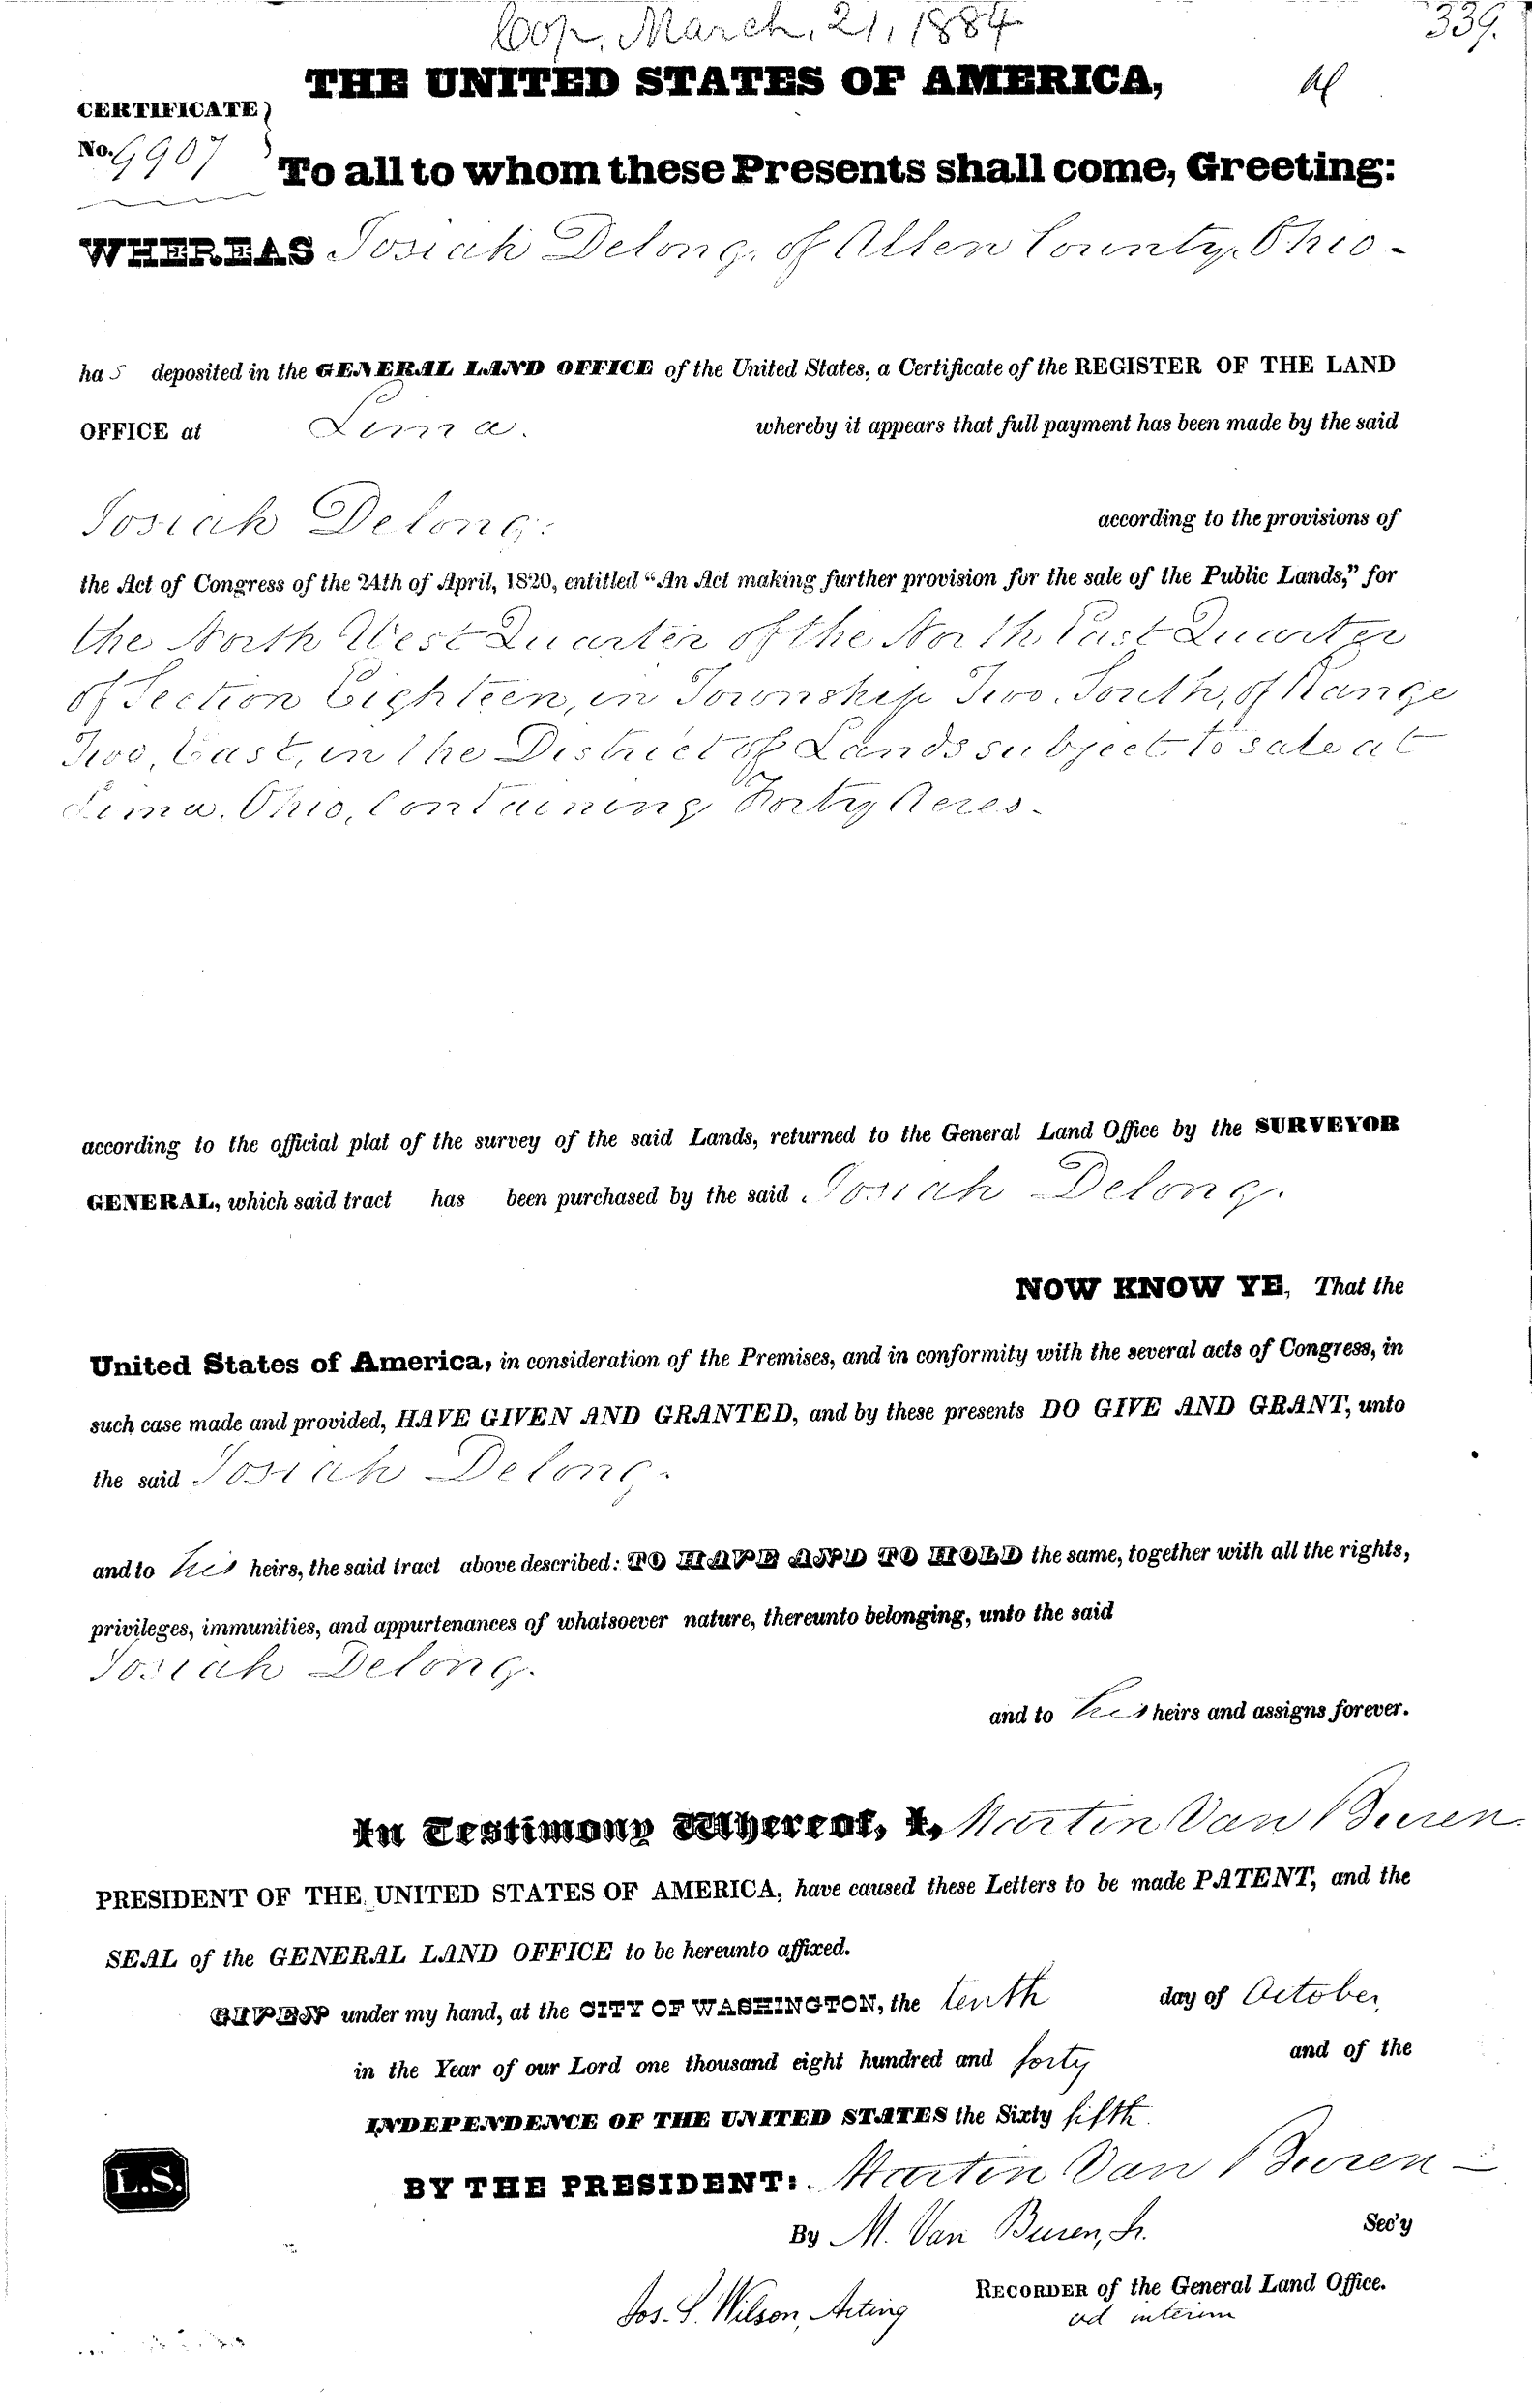 Cop. March, 21, 1884
339.
THE UNITED STATES OF AMERICA,
CERTIFICATE
No. 9907
To all to whom these Presents shall come, Greeting:
WHEREAS Josiah Delong, of Allen County, Ohio -
has deposited in the GENERAL LAND OFFICE of the United States, a Certificate of the REGISTER OF THE LAND
OFFICE at Lima. whereby it appears that full payment has been made by the said
Josiah Delong. according to the provisions of
the Act of Congress of the 24th of April, 1820, entitled “An Act making further provision for the sale of the Public Lands,” for
the North West Quarter of the North East Quarter
of Section Eighteen, in Township Two, South, of Range
Two, East, in the District of Lands subject to sale at
Lima, Ohio, Containing Forty Acres -
according to the official plat of the survey of the said Lands, returned to the General Land Office by the SURVEYOR
GENERAL, which said tract has been purchased by the said Josiah Delong.
NOW KNOW YE, That the
United States of America, in consideration of the Premises, and in conformity with the several acts of Congress, in
such case made and provided, HAVE GIVEN AND GRANTED, and by these presents DO GIVE AND GRANT, unto
the said Josiah Delong.
and to his heirs, the said tract above described: TO HAVE AND TO HOLD the same, together with all the rights,
privileges, immunities, and appurtenances of whatsoever nature, thereunto belonging, unto the said
Josiah Delong.
and to his heirs and assigns forever.
In Testimony Whereof, I, Martin Van Buren
PRESIDENT OF THE UNITED STATES OF AMERICA, have caused these Letters to be made PATENT, and the
SEAL of the GENERAL LAND OFFICE to be hereunto affixed.
GIVEN under my hand, at the CITY OF WASHINGTON, the tenth day of October,
in the Year of our Lord one thousand eight hundred and forty and of the
INDEPENDENCE OF THE UNITED STATES the Sixty fifth.
L.S.
BY THE PRESIDENT: Martin Van Buren -
By M. Van Buren, Jr. Sec'y
RECORDER of the General Land Office.
Jos. S. Wilson, Acting ad interim